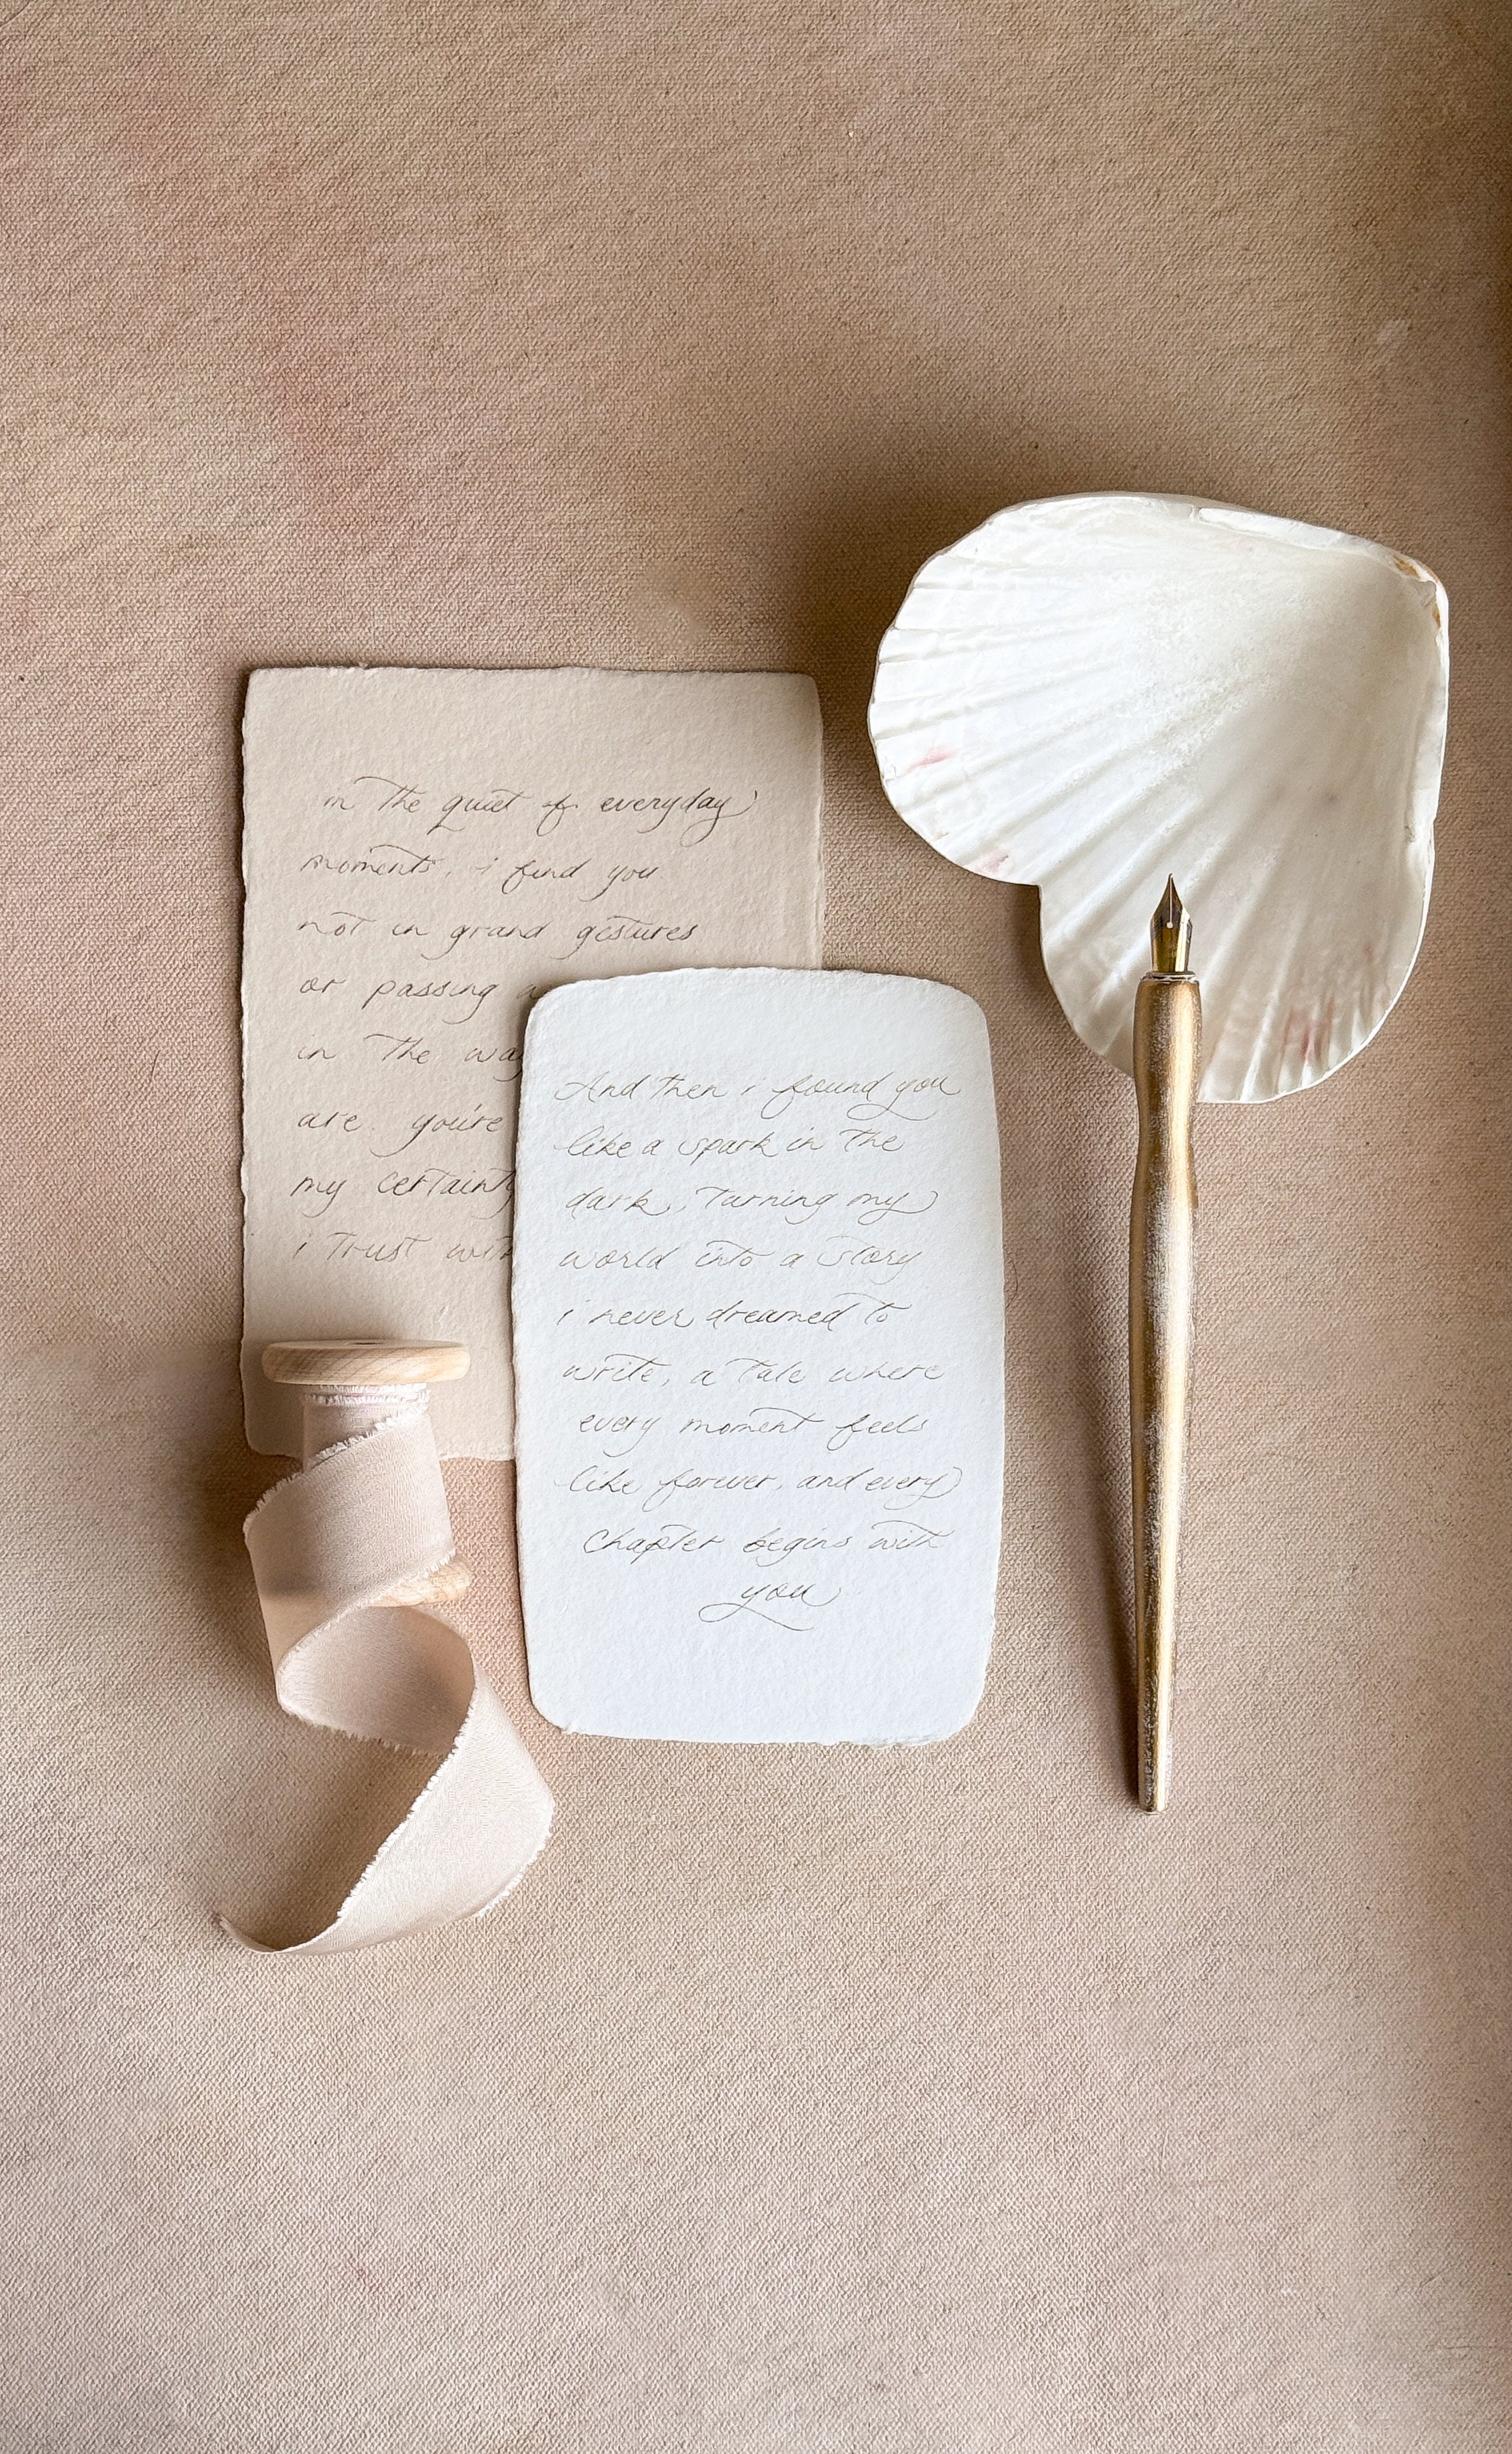 in the quiet of everyday
moments, i find you
not in grand gestures
or passing
in the way
are. you're
my certainty
i trust with
And then i found you
like a spark in the
dark, turning my
world into a story
i never dreamed to
write, a tale where
every moment feels
like forever, and every
chapter begins with
you